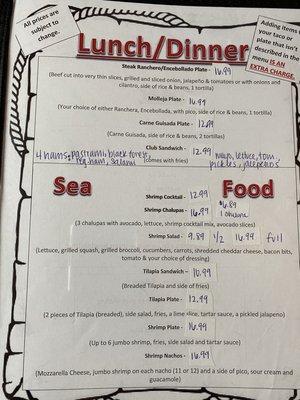 All prices are
subject to
change.
Adding items to
your taco or
plate that isn't
described in the
menu IS AN
EXTRA CHARGE.
Lunch/Dinner
Steak Ranchero/Encebollado Plate - 16.99
(Beef cut into very thin slices, grilled and sliced onion, jalapeño & tomatoes or with onions and
cilantro, side of rice & beans, 1 tortilla)
Molleja Plate - 16.99
(Your choice of either Ranchera, Encebollada, with pico, side of rice & beans, 1 tortilla)
Carne Guisada Plate - 12.99
(Carne Guisada, side of rice & beans, 2 tortillas)
Club Sandwich - 12.99
4 hams, pastrami, black forest,
reg. ham, salami
(comes with fries)
mayo, lettuce, tom,
pickles, jalapenos
Sea Food
Shrimp Cocktail - 12.99
Shrimp Chalupas - 16.99
$6.89
1 chalupa
(3 chalupas with avocado, lettuce, shrimp cocktail mix, avocado slices)
Shrimp Salad - 9.89 1/2 16.99 full
(Lettuce, grilled squash, grilled broccoli, cucumbers, carrots, shredded cheddar cheese, bacon bits,
tomato & your choice of dressing)
Tilapia Sandwich - 10.99
(Breaded Tilapia and side of fries)
Tilapia Plate - 12.99
(2 pieces of Tilapia (breaded), side salad, fries, a lime slice, tartar sauce, a pickled jalapeno)
Shrimp Plate - 16.99
(Up to 6 jumbo shrimp, fries, side salad and tartar sauce)
Shrimp Nachos - 16.99
(Mozzarella Cheese, jumbo shrimp on each nacho (11 or 12) and a side of pico, sour cream and
guacamole)